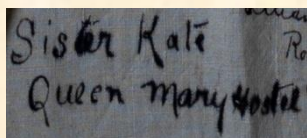 Sister Kate
Queen Mary Hostel